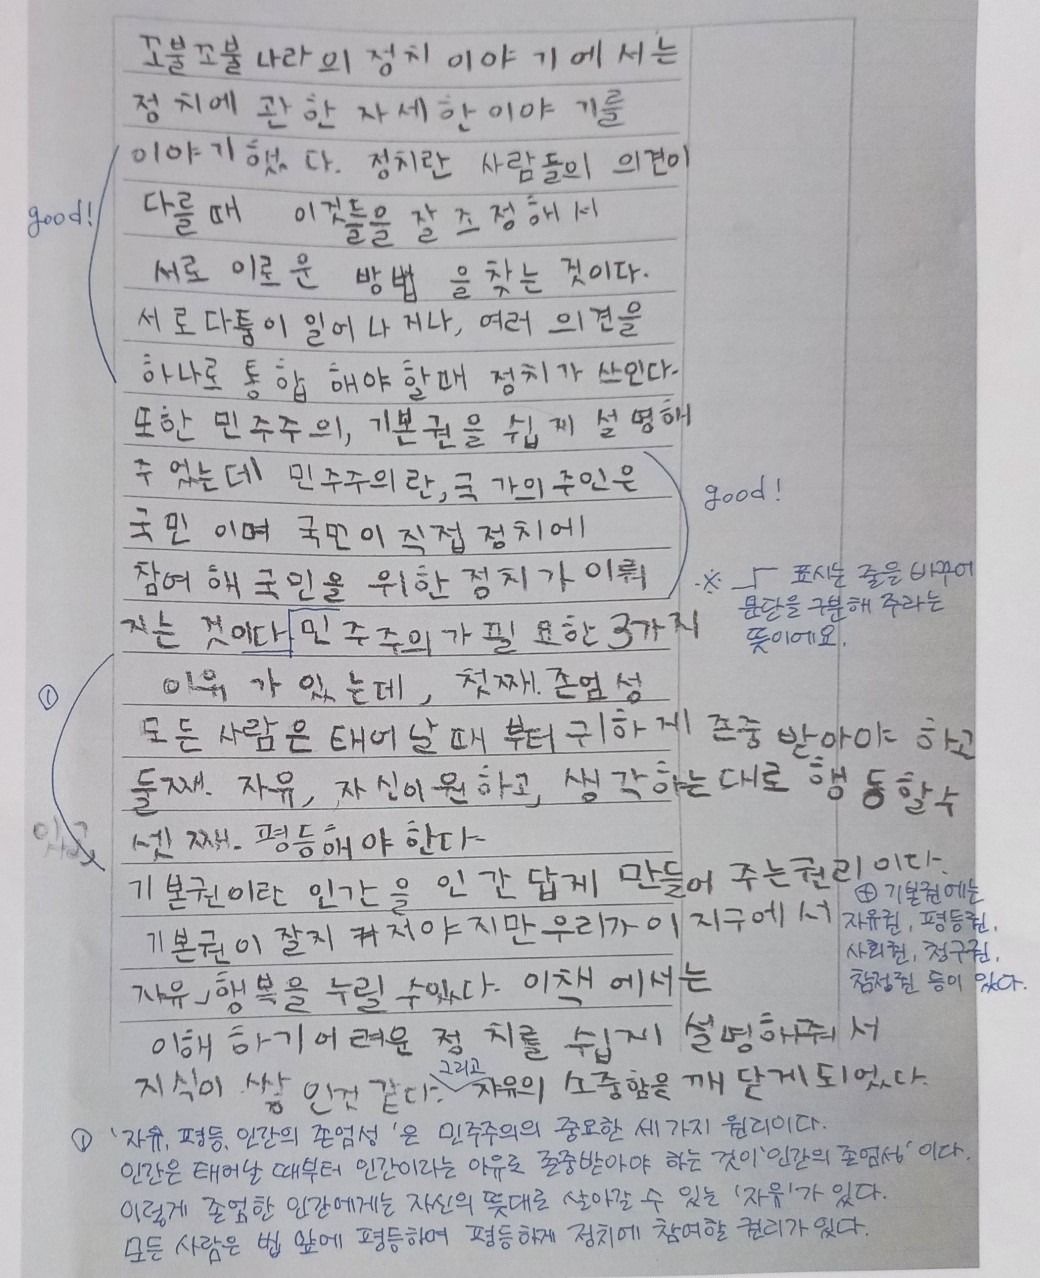 꼬불꼬불나라의 정치 이야기에서는
정치에 관한 자세한 이야기를
이야기했다. 정치란 사람들의 의견이
good!
다를 때 이것들을 잘 조정해서
서로 이로운 방법을 찾는 것이다.
서로 다툼이 일어나거나, 여러 의견을
하나로 통합해야 할때 정치가 쓰인다.
또한 민주주의, 기본권을 쉽게 설명해
주었는데 민주주의란, 국가의 주인은
good!
국민이며 국민이 직접 정치에
참여해 국민을 위한 정치가 이뤄
지는 것이다 민주주의가 필요한 3가지
※ 표시는 줄을 바꾸어
문단을 구분해 주라는
뜻이에요.
①
이유가 있는데, 첫째. 존엄성
모든 사람은 태어날때부터 귀하게 존중 받아야 하고
둘째. 자유, 자신이 원하고, 생각하는대로 행동할수
있고
셋째. 평등해야 한다.
기본권이란 인간을 인간답게 만들어 주는 권리이다.
⊕ 기본권에는
자유권, 평등권,
사회권, 청구권,
참정권 등이 있다.
기본권이 잘지켜져야지만 우리가 이 지구에서
자유, 행복을 누릴 수있다. 이책에서는
이해하기 어려운 정치를 쉽게 설명해줘서
지식이 쌓인것 같다. 그리고 자유의 소중함을 깨닫게 되었다.
① '자유, 평등, 인간의 존엄성'은 민주주의의 중요한 세가지 원리이다.
인간은 태어날 때부터 인간이라는 이유로 존중받아야 하는 것이 '인간의 존엄성'이다.
이렇게 존엄한 인간에게는 자신의 뜻대로 살아갈 수 있는 '자유'가 있다.
모든 사람은 법 앞에 평등하며 평등하게 정치에 참여할 권리가 있다.